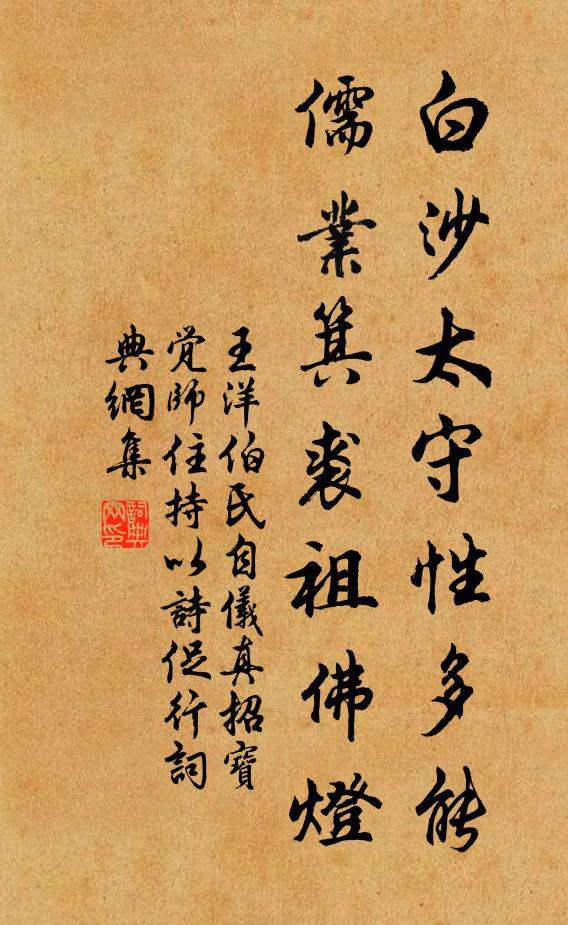 白沙太守性多能
儒業箕裘祖佛燈
王洋伯氏自儀真招寶
覚師住持以詩促行詞
典網集
詞典
网印